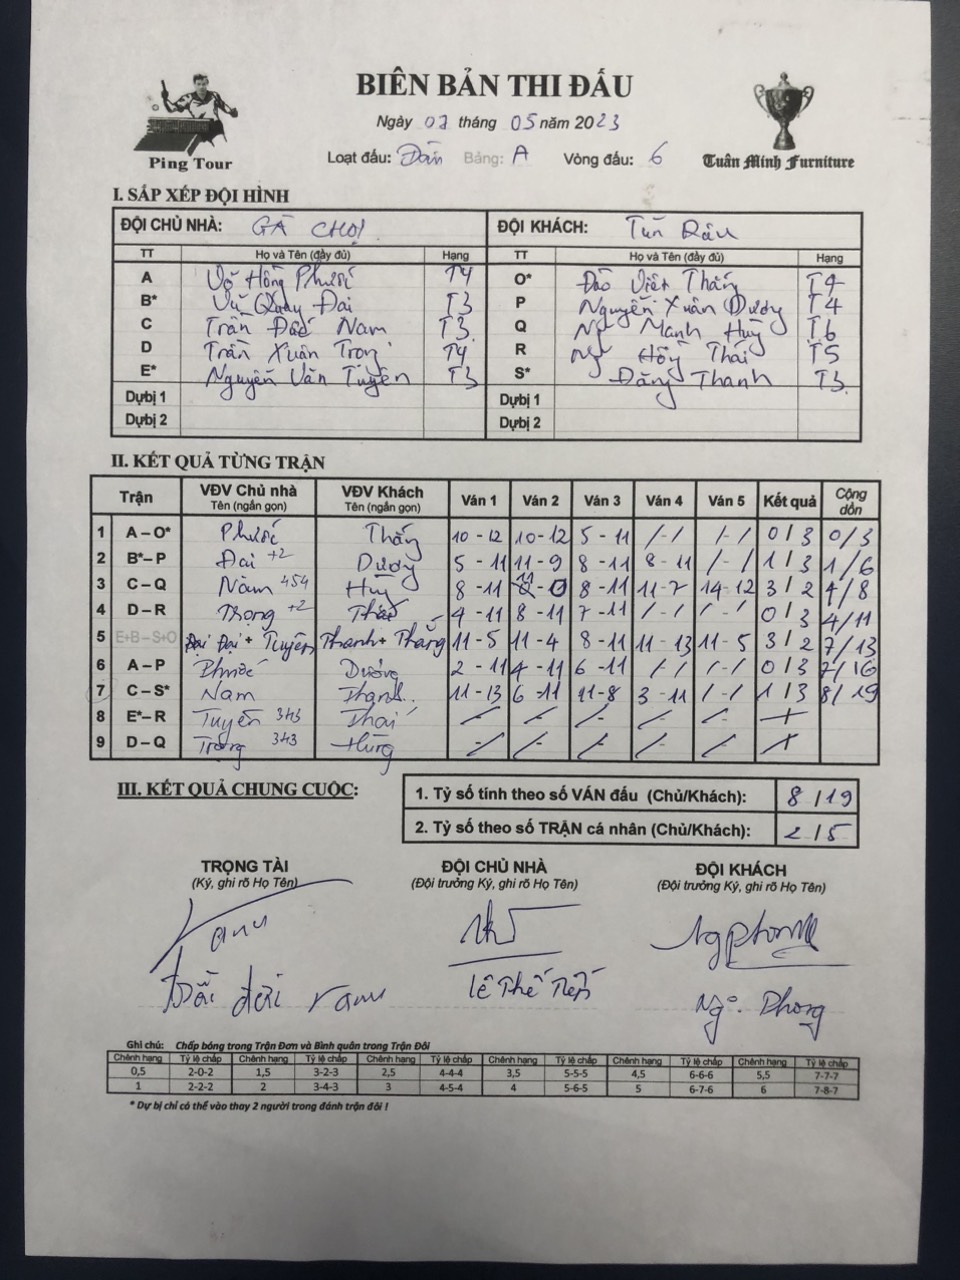 BIÊN BẢN THI ĐẤU
Ngày 07 tháng 05 năm 2023
Ping Tour
Loạt đấu: Đơn Bảng: A Vòng đấu: 6
Tuân Minh Furniture
I. SẮP XẾP ĐỘI HÌNH
ĐỘI CHỦ NHÀ: GÀ CHỌI ĐỘI KHÁCH: Tuấn Râu
TT Họ và Tên (đầy đủ) Hạng TT Họ và Tên (đầy đủ) Hạng
A Võ Hồng Phước T4 O* Đào Viết Thắng T4
B* Vũ Quang Đai T3 P Nguyễn Xuân Dương T4
C Trần Đắc Nam T3 Q Ng Mạnh Huy T6
D Trần Xuân Trọng T4 R Ng Hồng Thái T5
E* Nguyễn Văn Tuyên T3 S* Đặng Thanh T3
Dự bị 1 Dự bị 1
Dự bị 2 Dự bị 2
II. KẾT QUẢ TỪNG TRẬN
Trận VĐV Chủ nhà Tên (ngắn gọn) VĐV Khách Tên (ngắn gọn) Ván 1 Ván 2 Ván 3 Ván 4 Ván 5 Kết quả Cộng dồn
1 A – O* Phước Thắng 10 - 12 10 - 12 5 - 11 /-/ /-/ 0/3 0/3
2 B* – P Đai +2 Dương 5 - 11 11 - 9 8 - 11 8 - 11 /-/ 1/3 1/6
3 C – Q Nam 454 Huy 8 - 11 11 - 0 8 - 11 11 - 7 14 - 12 3/2 4/8
4 D – R Trọng +2 Thái 4 - 11 8 - 11 7 - 11 /-/ /-/ 0/3 4/11
5 E+B – S+O Đại Đại + Tuyên Thanh + Thắng 11 - 5 11 - 4 8 - 11 11 - 13 11 - 5 3/2 7/13
6 A – P Phước Dương 2 - 11 4 - 11 6 - 11 /-/ /-/ 0/3 7/16
7 C – S* Nam Thanh 11 - 13 6 - 11 11 - 8 3 - 11 /-/ 1/3 8/19
8 E* – R Tuyên 343 Thái
9 D – Q Trọng 343 Hùng
III. KẾT QUẢ CHUNG CUỘC:
1. Tỷ số tính theo số VÁN đấu (Chủ/Khách): 8/19
2. Tỷ số theo số TRẬN cá nhân (Chủ/Khách): 2/5
TRỌNG TÀI ĐỘI CHỦ NHÀ ĐỘI KHÁCH
(Ký, ghi rõ Họ Tên) (Đội trưởng Ký, ghi rõ Họ Tên) (Đội trưởng Ký, ghi rõ Họ Tên)
Lê Thế Tiến
Ng. Phong
Ghi chú: Chấp bóng trong Trận Đơn và Bình quân trong Trận Đôi
Chênh hạng Tỷ lệ chấp Chênh hạng Tỷ lệ chấp Chênh hạng Tỷ lệ chấp Chênh hạng Tỷ lệ chấp Chênh hạng Tỷ lệ chấp Chênh hạng Tỷ lệ chấp
0,5 2-0-2 1,5 3-2-3 2,5 4-4-4 3,5 5-5-5 4,5 6-6-6 5,5 7-7-7
1 2-2-2 2 3-4-3 3 4-5-4 4 5-6-5 5 6-7-6 6 7-8-7
* Dự bị chỉ có thể vào thay 2 người trong đánh trận đôi !